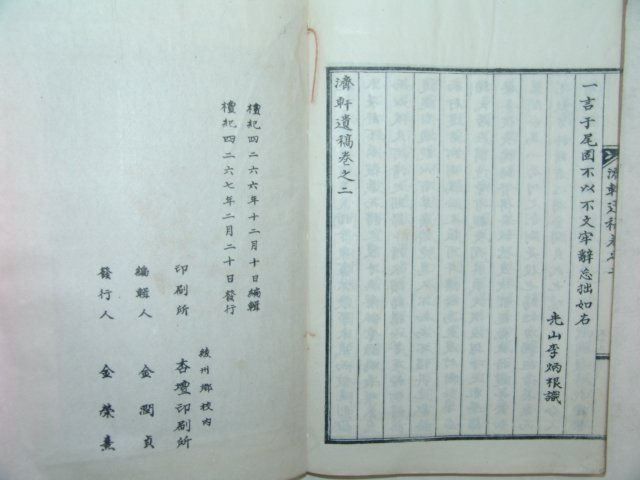 一言于尾固不以不文牢辭忘拙如右
光山李炳根識
濟軒遺稿卷之二
檀紀四二六六年十二月十日編輯
檀紀四二六七年二月二十日發行
綾州鄕校內
印刷所 杏壇印刷所
編輯人 金閏貞
發行人 金榮熹